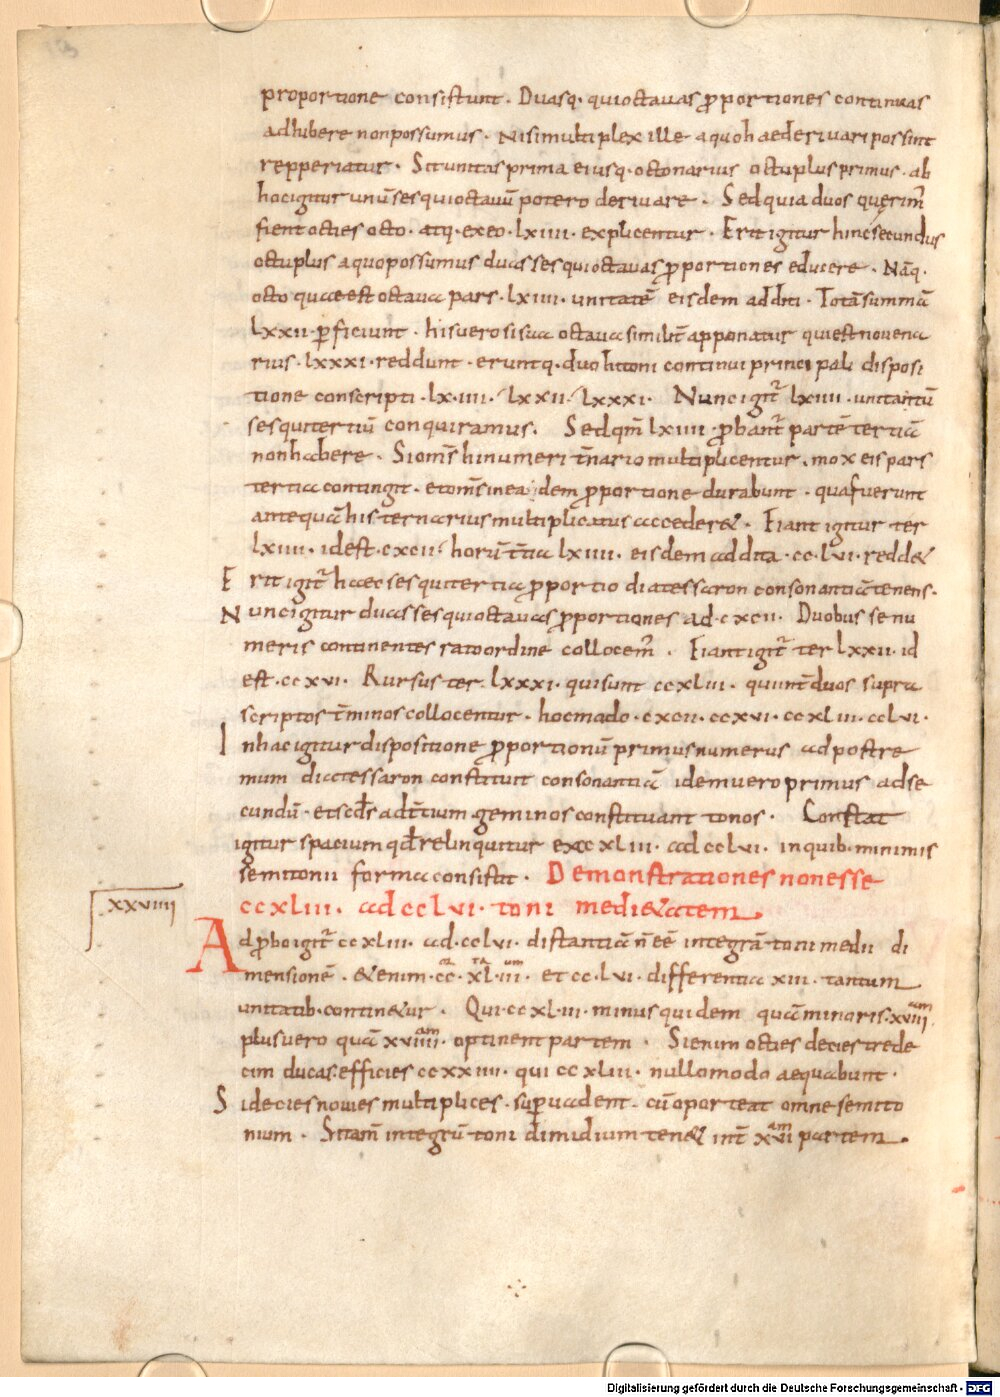 proportione consistunt. Duasq· quioctauas ꝓportiones continuas
adhibere non possumus. Nisi multiplex ille a quo haederiuari possint
repperiatur. Sit unitas prima eiusq· octonarius octuplus primus. ab
hoc igitur unū sesquioctauū potero deriuare. Sed quia duos quęrim̄
fient octies octo. atq· exeo. lxiiii. explicentur. Erit igitur hinc secundus
octuplus a quo possumus duas sesquioctauas ꝓportiones educere. Nāq·
octo quae est octaua pars. lxiiii. unitatē eisdem additi. Totā summā
lxxii. ꝑficiunt. his uero si sua octaua similit̄ apponatur qui est nouena
rius. lxxxi. reddunt. eruntq· duo hi toni continui principali disposi
tione conscripti. lx.iiii. lxxii. lxxxi. Nunc igit̄ lxiiii. unitantū
sesquitertiū conquiramus. Sed qm̄ lxiiii. ꝓbant̄ partē tertiā
non habere. Si om̄s hi numeri t̄nario multiplicentur. mox eis pars
tertia contingit. et om̄s in eadem ꝓportione durabunt. qua fuerunt
antequā his ternarius multiplicatus acceder&. Fiant igitur ter
lxiiii. id est. cxcii. horū t̄tia lxiiii. eisdem addita. cc.lvi. redd&
Erit igit̄ haec sesquitertia ꝓportio diatessaron consonantiā tenens.
Nunc igitur duas sesquioctauas ꝓportiones ad. cxcii. Duobus se nu
meris continentes rato ordine collocem̄. Fiant igit̄ ter lxxii. id
est. ccxvi. Rursus ter. lxxxi. qui sunt ccxliii. qui int̄ duos supra
scriptos t̄minos collocentur. hoc modo. cxcii. ccxvi. ccxliii. cclvi.
In hac igitur dispositione ꝓportionū primus numerus ad postre
mum diatessaron constituit consonantiā idem uero primus ad se
cundū. et scd̄s ad t̄tium geminos constituunt tonos. Constat
igitur spacium qd̄ relinquitur ex ccxliii. ad cclvi. in quib· minimis
semitonii forma consistit. Demonstrationes non esse
ccxliii. ad cclvi. toni medi&atem
xxviiii
Ad ꝓbo igit̄ ccxliii. ad. cclvi. distantiā n̄ eē integrā toni medii di
mensionē. &enim. cc. xl.iii. et cc.lvi. differentia xiii. tantum
unitatib· contin&ur. Qui. ccxl.iii. minus quidem quā minoris. xviii
plus uero quā xviiii. optinent partem. Si enim octies decies trede
cim ducas. efficies ccxxxiiii. qui ccxliii. nullo modo aequabunt.
Si decies nouies multiplices. suꝑuadent. cū oporteat omne semito
nium. Si tam̄ integrū toni dimidium ten& int̄ xvi partem.